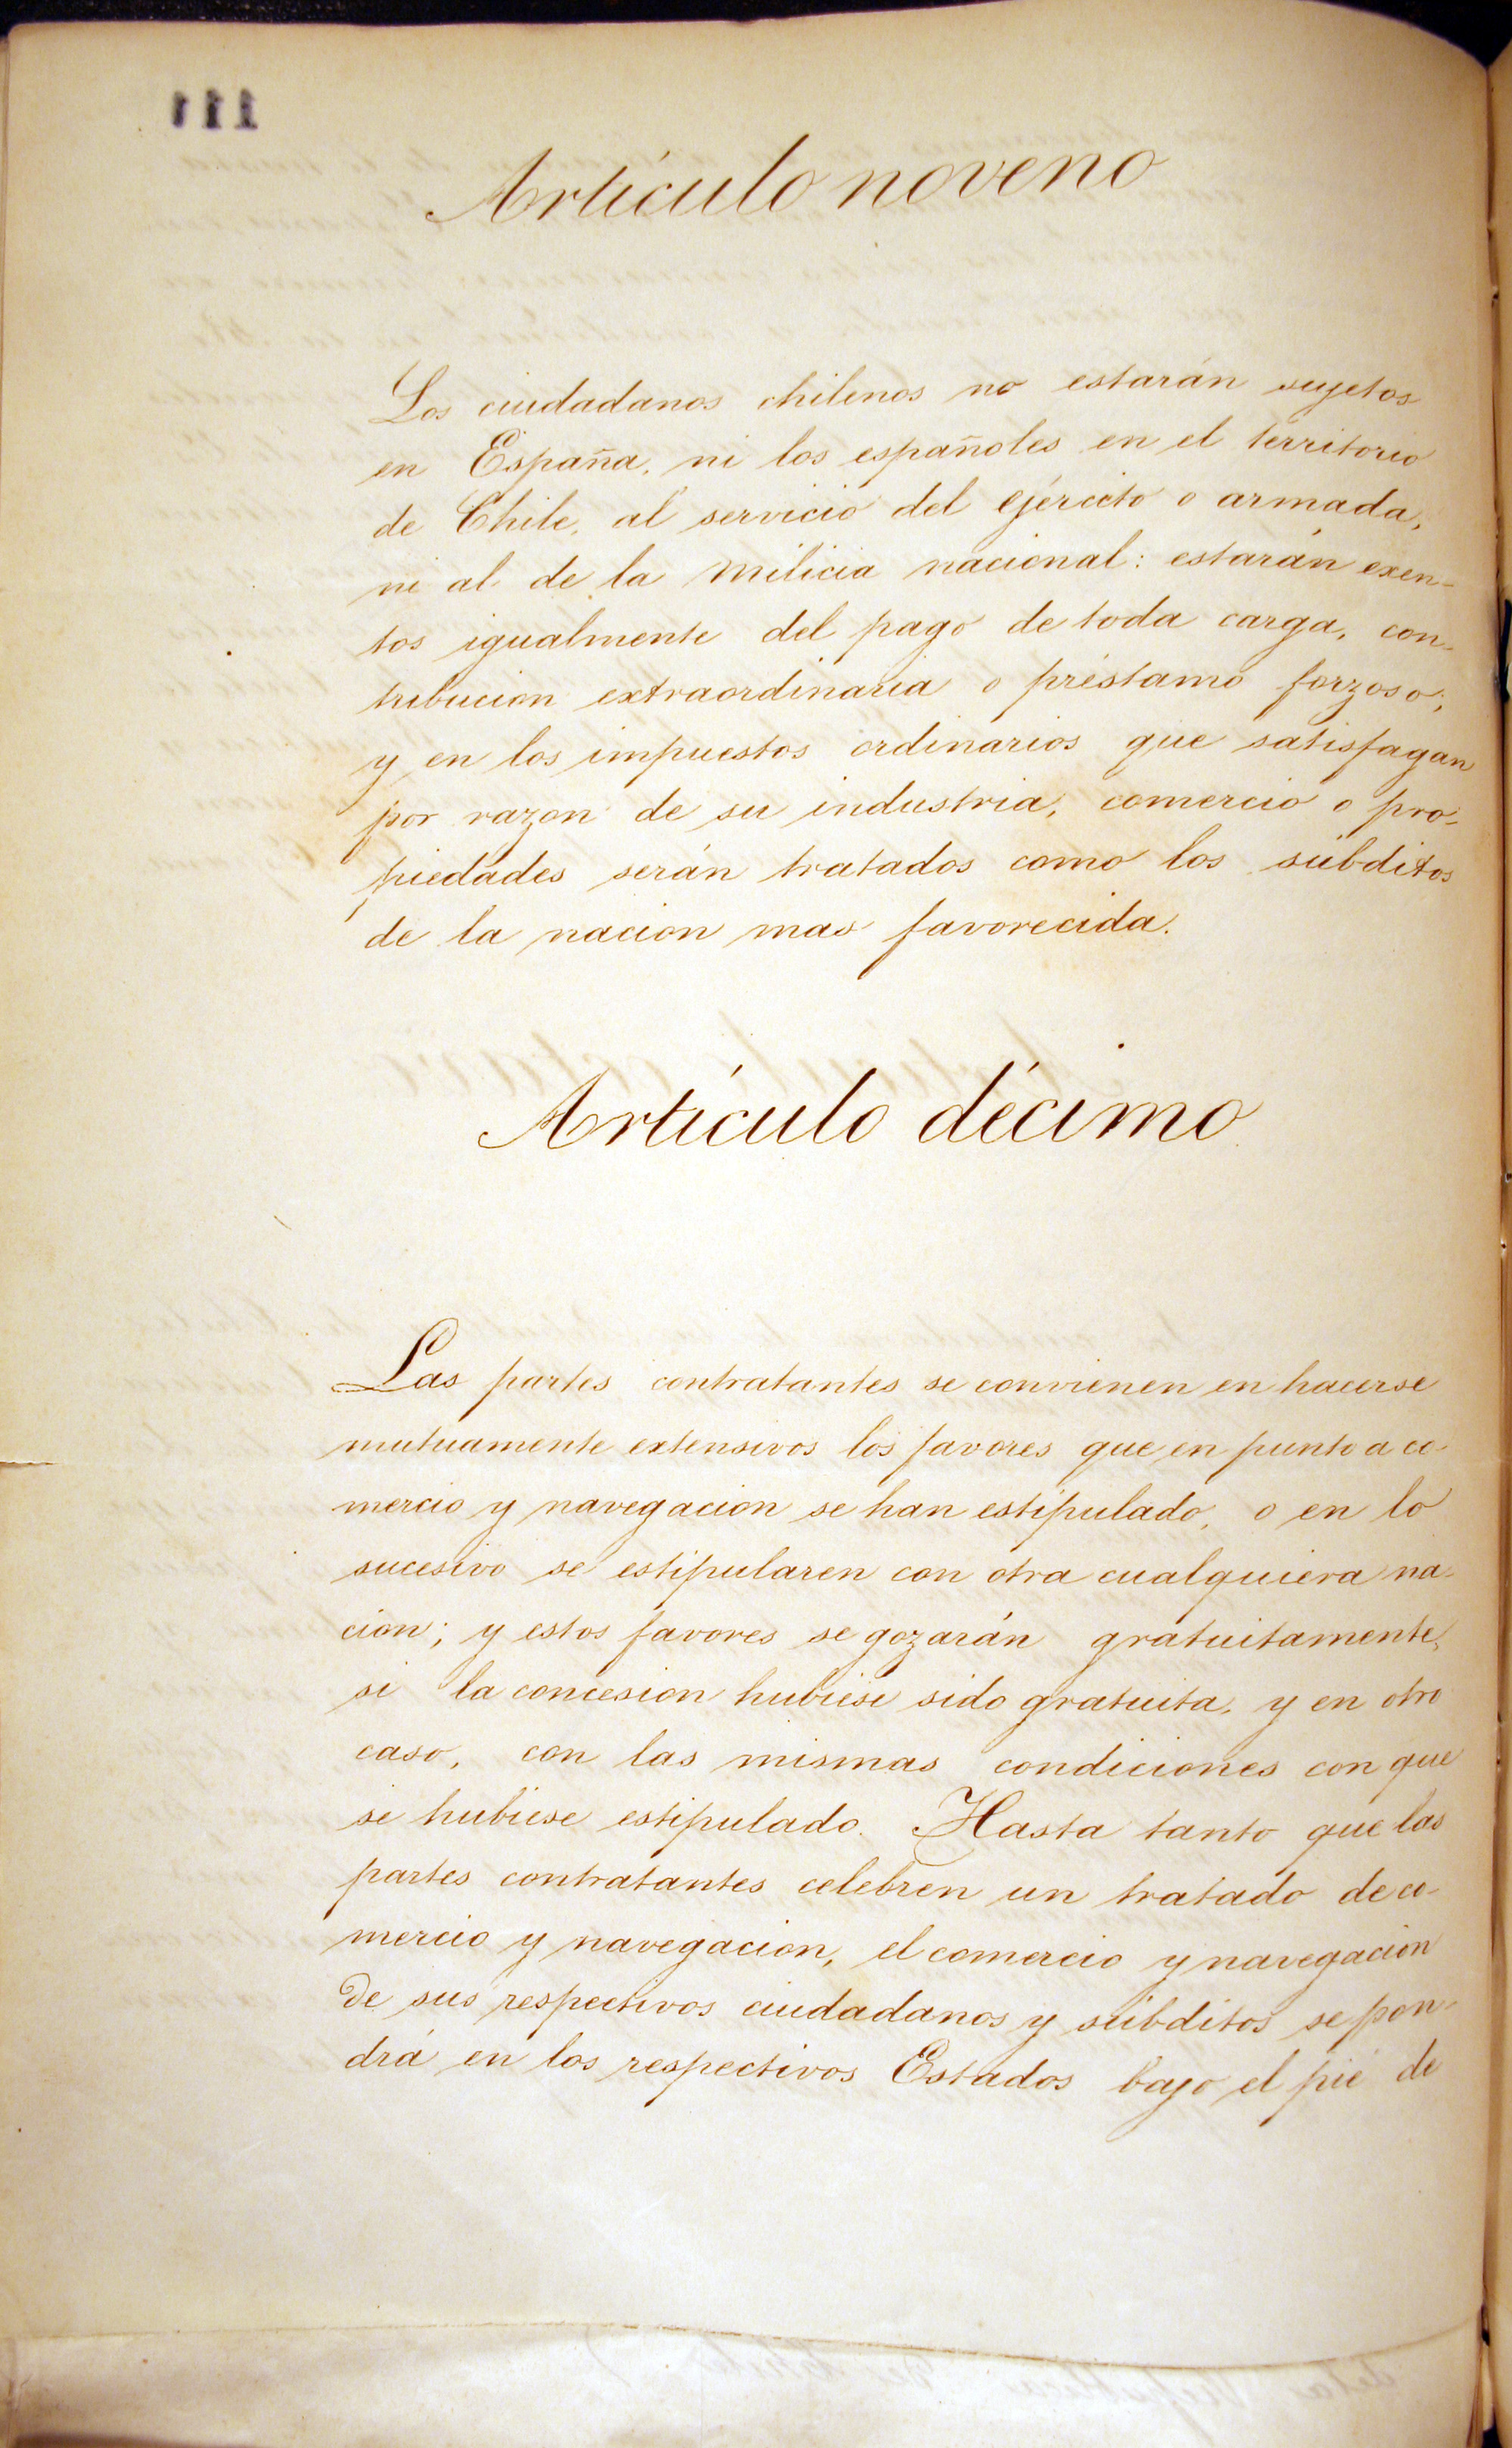 111
Artículo noveno
Los ciudadanos chilenos no estarán sujetos
en España, ni los españoles en el territorio
de Chile, al servicio del ejército o armada,
ni al de la milicia nacional: estarán exen-
tos igualmente del pago de toda carga, con-
tribucion extraordinaria o préstamo forzoso;
y en los impuestos ordinarios que satisfagan
por razon de su industria, comercio o pro-
piedades serán tratados como los súbditos
de la nacion mas favorecida.
Artículo décimo
Las partes contratantes se convienen en hacerse
mutuamente extensivos los favores que en punto a co-
mercio y navegacion se han estipulado, o en lo
sucesivo se estipularen con otra cualquiera na-
cion; y estos favores se gozarán gratuitamente,
si la concesion hubiese sido gratuita, y en otro
caso, con las mismas condiciones con que
se hubiese estipulado. Hasta tanto que las
partes contratantes celebren un tratado de co-
mercio y navegacion, el comercio y navegacion
de sus respectivos ciudadanos y súbditos se pon-
drá en los respectivos Estados bajo el pié de